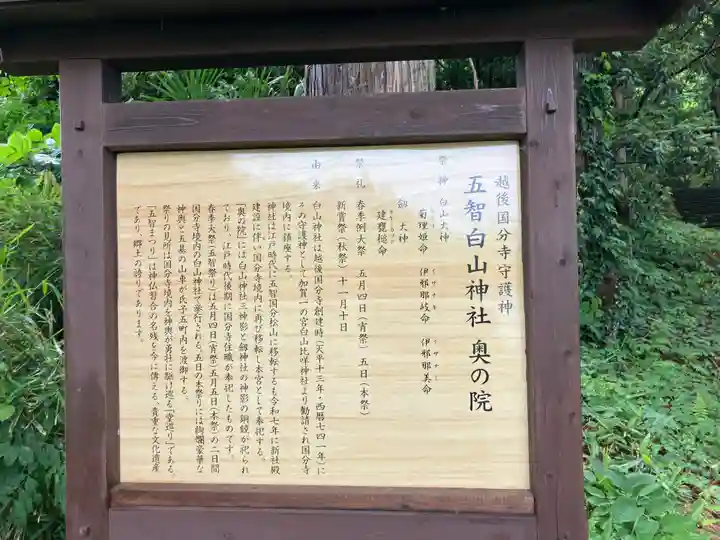 越後国分寺守護神
五智白山神社 奥の院
祭神 白山大神
菊理姫命 伊邪那岐命 伊邪那美命
劔大神
建甕槌命
祭礼 春季例大祭 五月四日(宵祭) 五日(本祭)
新嘗祭(秋祭) 十一月十日
由来 白山神社は越後国分寺創建時(天平十三年・西暦七四一年)に
その守護神として加賀一の宮白山比咩神社より勧請され国分寺
境内に鎮座する。
神社は江戸時代に五智国分松山に移転するも令和七年に新社殿
建設に伴い国分寺境内に再び移転し本宮として奉祀する。
「奥の院」には白山神社三神影と劔神社の神影の銅鏡が祀られ
ており、江戸時代後期に国分寺住職が奉祀したものです。
春季大祭(五智祭り)は五月四日(宵祭)五月五日(本祭)の二日間
国分寺境内の白山神社で挙行される。五日の本祭りには絢爛豪華な
神輿と五基の山車が氏子五町内を渡御する。
祭りの見所は国分寺境内を神輿が勇壮に駆け巡る「堂巡り」である。
「五智まつり」は神仏習合の名残を今に傳える、貴重な文化遺産
であり、郷土の誇りであります。